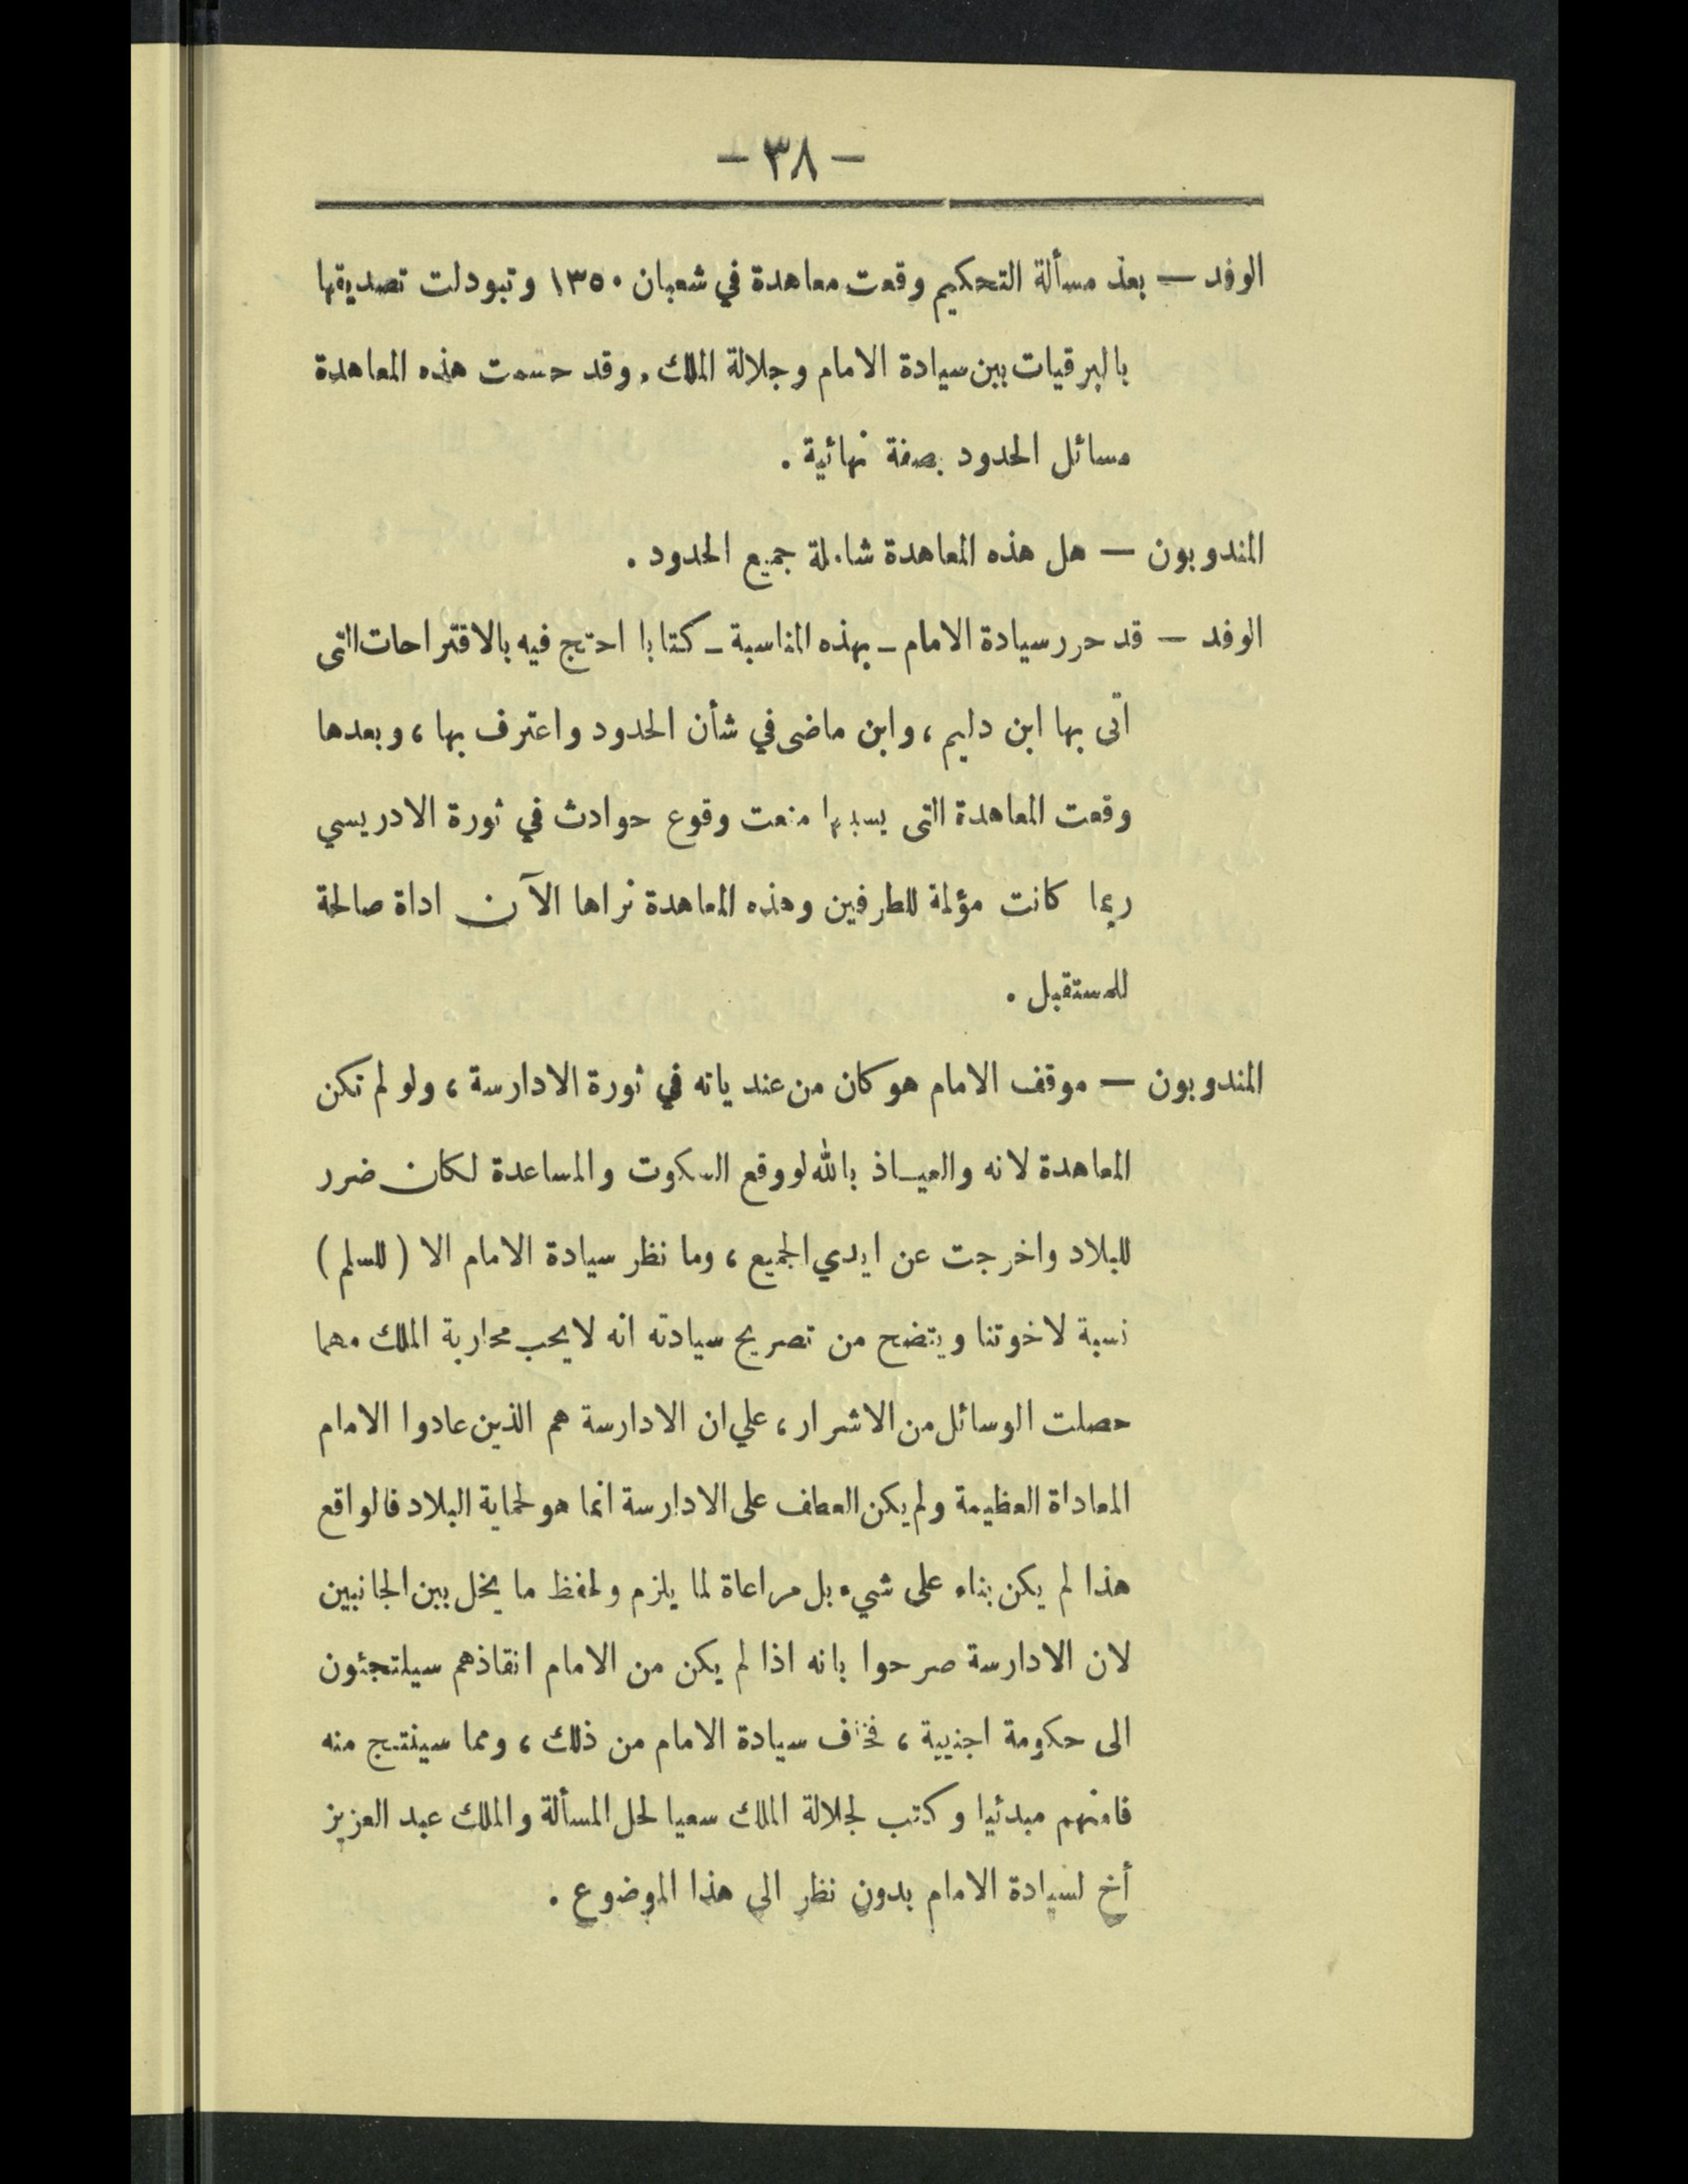 — ٣٨ —
الوفد — بعد مسألة التحكيم وقعت معاهدة في شعبان ١٣٥٠ وتبودلت تصديقها
بالبرقيات بين سيادة الامام وجلالة الملك . وقد حسمت هذه المعاهدة
مسائل الحدود بصفة نهائية .
المندوبون — هل هذه المعاهدة شاملة جميع الحدود .
الوفد — قد حرر سيادة الامام ـ بهذه المناسبة ـ كتابا احتج فيه بالاقتراحات التى
اتى بها ابن دليم ، وابن ماضى في شأن الحدود واعترف بها ، وبعدها
وقعت المعاهدة التى بسببها منعت وقوع حوادث في ثورة الادريسي
ربما كانت مؤلمة للطرفين وهذه المعاهدة نراها الآن اداة صالحة
للمستقبل .
المندوبون — موقف الامام هو كان من عندياته في ثورة الادارسة ، ولو لم تكن
المعاهدة لانه والعياذ بالله لو وقع السكوت والمساعدة لكان ضرر
للبلاد واخرجت عن ايدي الجميع ، وما نظر سيادة الامام الا ( للسلم )
نسبة لاخوتنا ويتضح من تصريح سيادته انه لا يحب محاربة الملك مهما
حصلت الوسائل من الاشرار ، علي ان الادارسة هم الذين عادوا الامام
المعاداة العظيمة ولم يكن العطف على الادارسة انما هو لحماية البلاد فالواقع
هذا لم يكن بناء على شيء بل مراعاة لما يلزم ولحفظ ما يخل بين الجانبين
لان الادارسة صرحوا بانه اذا لم يكن من الامام انقاذهم سيلتجئون
الى حكومة اجنبية ، فخاف سيادة الامام من ذلك ، ومما سينتج منه
فامنهم مبدئيا وكتب لجلالة الملك سعيا لحل المسألة والملك عبد العزيز
أخ لسيادة الامام بدون نظر الى هذا الموضوع .